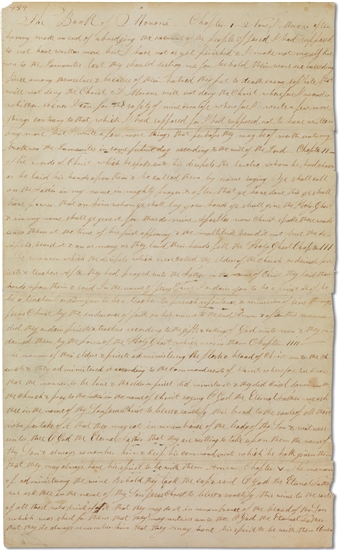 The Book of Moroni Chapter 1 I Moroni after
having made an end of abridging the account of the people of Jared I had supposed
to not have written more but I have not as yet perished & I make not myself known
to the Lamanites lest they should destroy me for behold their wars are exceeding
fierce among themselves & because of their hatred they put to death every
will not deny the Christ & I Moroni will not deny the Christ wherefore I wander
wherefore I write a few more
things contrary to that which I had supposed for I had supposed not to have written
any more But I write a few more things that perhaps they may be of worth unto my
brethren the Lamanites in some future day according to the will of the Lord Chapter II
The words of Christ which he spake unto his disciples the twelve whom he had chosen
as he laid his hands upon them & he called them by name saying Ye shall call
on the Father in my name in mighty prayer & after that ye have done this ye shall
have power that on him whom ye shall lay your hands ye shall give the Holy Ghost
& in my name shall ye give it for thus do mine Apostles now Christ spake these words
unto them at the time of his first appearing & the multitude heard it not but the
disciples heard it & on as many as they laid their hands fell the Holy Ghost Chapter III
The manner which the disciples which were called the elders of the church ordained priests
& teachers after they had prayed unto the Father in the name of Christ they laid their
hands upon them & said In the name of Jesus Christ I ordain you to be a priest or if he
be a teacher I ordain you to be a teacher to preach repentance & remission of sins through
Jesus Christ by the endurance of faith on his name to the end Amen & after this manner
did they ordain priests & teachers according to the gifts & callings of God unto men & they
ordained them by the power of the Holy Ghost which was in them Chapter IIII
The manner of their elders & priests administering the flesh & blood of Christ unto the
church & they administered it according to the commandments of Christ wherefore we know
that the manner to be true & the elder or priest did minister it & they did kneel down with
the Church & pray to the Father in the name of Christ saying O God the Eternal Father we ask
thee in the name of thy Son Jesus Christ to bless & sanctify this bread to the souls of all those
who partake of it that they may eat in remembrance of the body of thy Son & witness
unto thee O God the Eternal Father that they are willing to take upon them the name of
thy Son & always remember him & keep his commandments which he hath given them
that they may always have his spirit to be with them Amen Chapter V The manner
of administering the wine Behold they took the cup & said O God the Eternal Father
we ask thee in the name of thy Son Jesus Christ to bless & sanctify this wine to the souls
of all those who drink of it that they may do it in remembrance of the blood of thy Son
which was shed for them that they may witness unto thee O God the Eternal Father
that they do always remember him that they may have his spirit to be with them